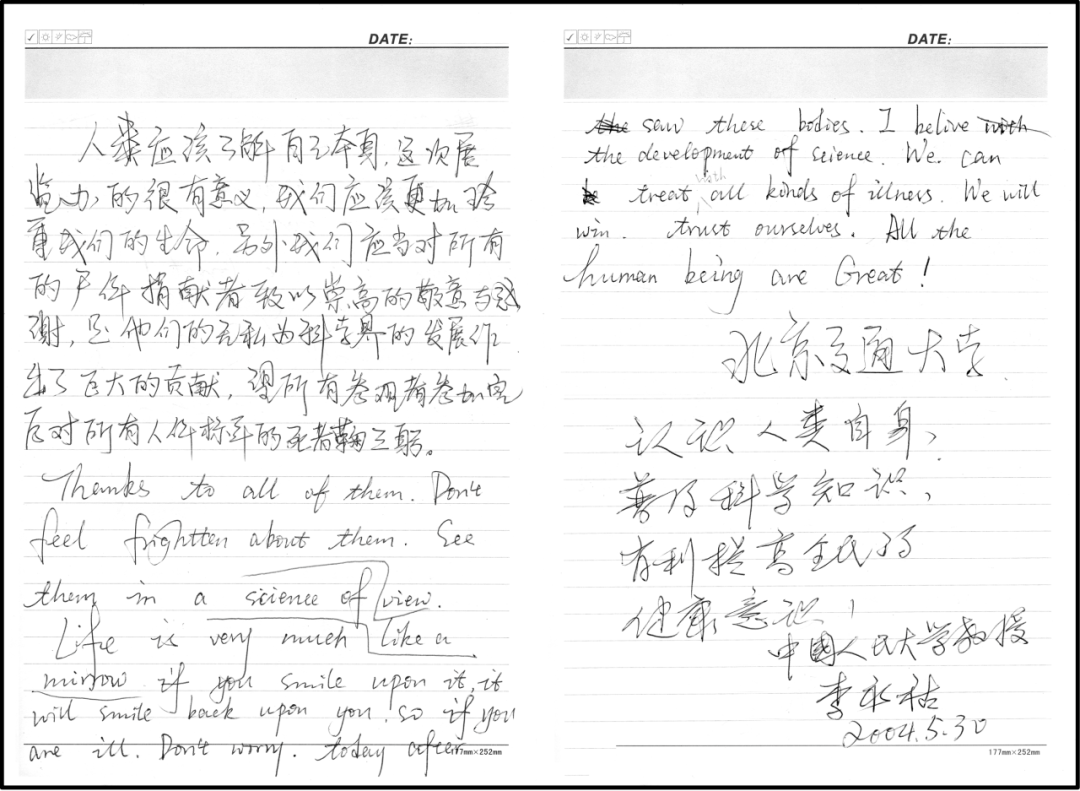 DATE:
人类应该了解自己本身,这次展
览办的很有意义,我们应该更加珍
重我们的生命,另外我们应当对所有
的尸体捐献者致以崇高的敬意与感
谢,是他们的无私为科学界的发展作
出了巨大的贡献,望所有参观者参加完
后对所有人体标本的死者鞠三躬。
Thanks to all of them. Don't
feel frightten about them. See
them in a science of view.
Life is very much like a
mirrow if you smile upon it, it
will smile back upon you. so if you
are ill. Don't worry. today after
177mm×252mm
DATE:
the saw these bodies. I belive with
the development of science. We can
treat with all kinds of illners. We will
win. trust ourselves. All the
human being are Great!
北京交通大学.
认识人类自身,
普及科学知识,
有利提高全民的
健康意识!
中國人民大学教授
李永祜
2004.5.30
177mm×252mm